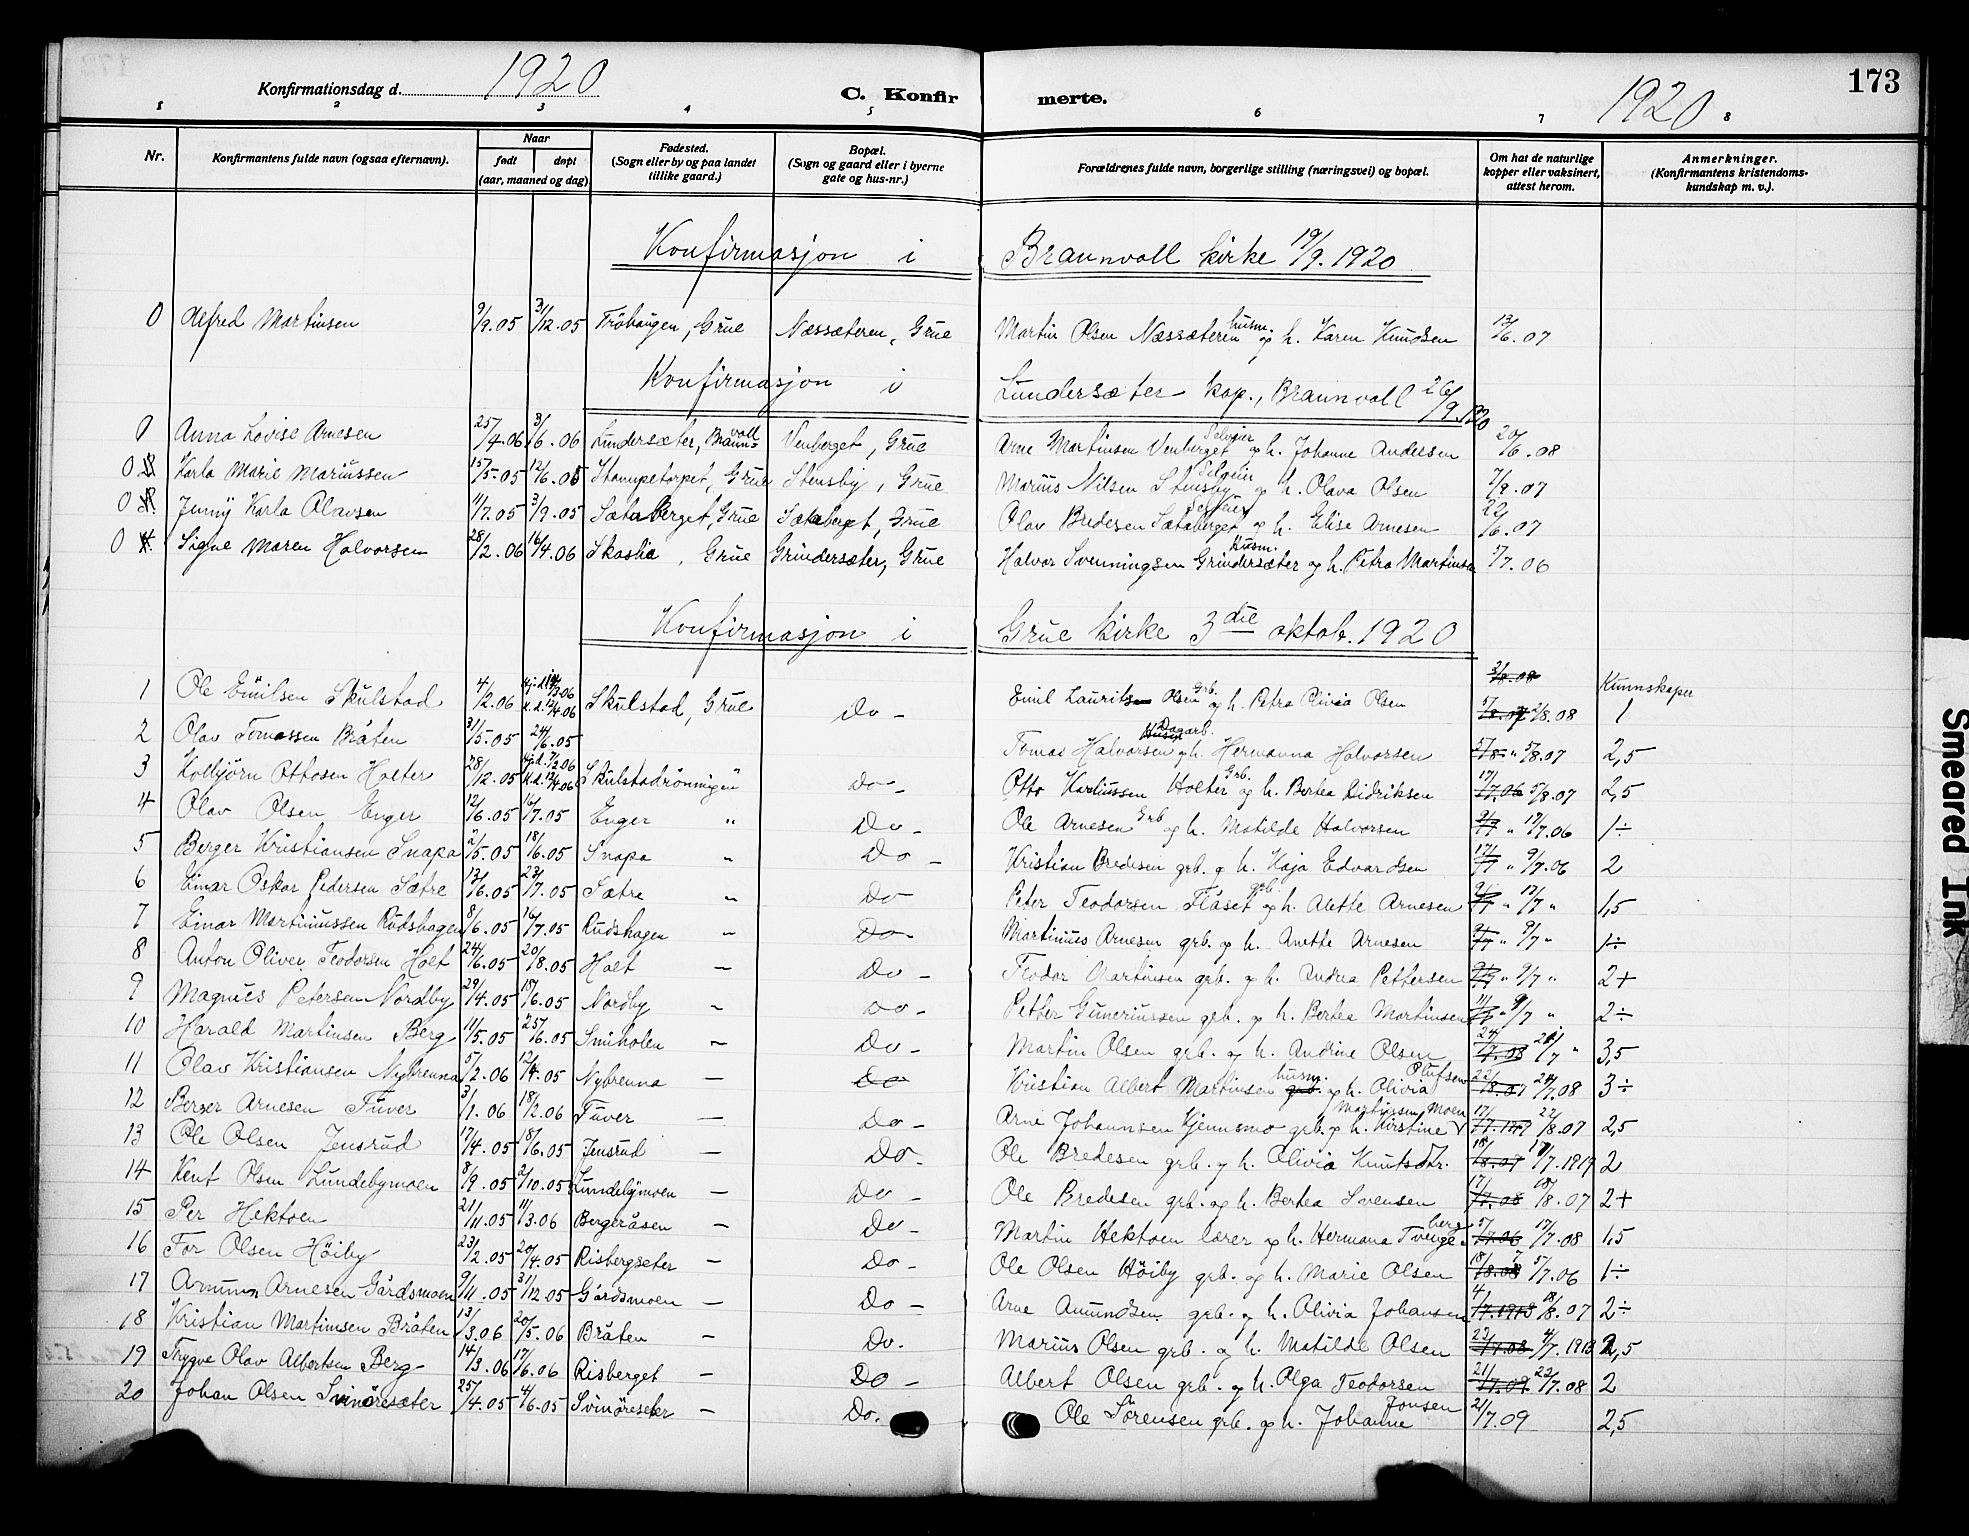 173
Konfirmationsdag d. 1920
C. Konfirmerte.
1920
1 2 3 4 5 6 7 8
Nr. Konfirmantens fulde navn (ogsaa efternavn). Naar født døpt (aar, maaned og dag) Fødested. (Sogn eller by og paa landet tillike gaard.) Bopæl. (Sogn og gaard eller i byerne gate og hus-nr.) Forældrenes fulde navn, borgerlige stilling (næringsvei) og bopæl. Om hat de naturlige kopper eller vaksinert, attest herom. Anmerkninger. (Konfirmantens kristendoms-kundskap m. v.).
Konfirmasjon i Brannvoll kirke 19/9. 1920
0 Alfred Martinsen 9/9.05 31/12.05 Tröhaugen, Grue Næssæteren, Grue Martin Olsen Næssæteren husm. og h. Karen Knudsen 13/6.07
Konfirmasjon i Lundersæter kap., Brannvoll 26/9.1920
0 Anna Lovise Arnesen 25/4.06 3/6.06 Lundersæter, Brannvoll Venberget, Grue Arne Martinsen Venberget Selveier og h. Johanne Andersen 20/6.08
0 Karla Marie Mariussen 15/5.05 12/6.05 Stampetorpet, Grue Stensby, Grue Marius Nilsen Stensby Selveier og h. Olava Olsen 7/9.07
0 Jenny Karla Olavsen 11/7.05 3/9.05 Sætaberget, Grue Sætaberget, Grue Olav Bredesen Sætaberget Selveier og h. Elise Arnesen 22/6.07
0 Signe Maren Halvorsen 28/2.06 16/4.06 Skaslia, Grue Grindersæter, Grue Halvor Svenningsen Grindersæter husm. og h. Petra Martinsen 5/7.06
Konfirmasjon i Grue kirke 3die oktob. 1920
1 Ole Emilsen Skulstad 4/2.06 Hj.d. 14/3.06 K.d. 12/4.06 Skulstad, Grue Do - Emil Lauritsen Olsen Grb. og h. Petra Olivia Olsen 2/8.08 Kunnskaper 1
2 Olav Tomassen Bråten 31/5.05 24/6.05 Tomas Halvorsen Dagarb. og h. Hermanna Halvorsen 5/8.07 2,5
3 Kolbjörn Ottosen Holter 28/12.05 Hj.d. 7/2.06 K.d. 12/4.06 Skulstadrönningen " Do - Otto Karlussen Holter Grb. og h. Bertea Didriksen 5/8.07 2,5
4 Olav Olsen Enger 12/6.05 16/7.05 Enger " Do - Ole Arnesen Grb og h. Matilde Halvorsen 17/7.06 1÷
5 Berger Kristiansen Snapa 2/5.05 18/6.05 Snapa " Do - Kristian Bredesen grb. og h. Kaja Edvardsen 9/7.06 2
6 Einar Oskar Pedersen Sætre 13/6.05 23/7.05 Sætre " Do Peter Teodorsen Flåset grb. og h. Alette Arnesen 17/7 " 1,5
7 Einar Martiniussen Rudshagen 8/6.05 16/7.05 Rudshagen " Do - Martinius Arnesen grb. og h. Anette Arnesen 9/7 " 1÷
8 Anton Oliver Teodorsen Holt 24/6.05 20/8.05 Holt - Do - Teodor Martinsen grb. og h. Andrea Pettersen 9/7 " 2+
9 Magnus Petersen Nordby 29/4.05 18/6.05 Nordby - Do - Petter Guneriussen grb. og h. Bertea Martinsen 9/7 " 2÷
10 Harald Martinsen Berg 11/5.05 25/6.05 Smiholen - Do - Martin Olsen grb. og h. Andrine Olsen 3,5
11 Olav Kristiansen Nybrenna 5/2.06 12/4.05 Nybrenna - Do Kristian Albert Martinsen husm. og h. Olivia Olufsen 24/7.08 3÷
12 Berger Arnesen Tuver 3/1.06 18/2.06 Tuver - Do - Arne Johannsen Kjensmo grb. og h. Kirstine Martinsen Moen 22/8.07 2,5
13 Ole Olsen Jensrud 17/4.05 18/6.05 Jensrud - Do - Ole Bredesen grb. og h. Olivia Knutsdtr. 17/7.1919 2
14 Kent Olsen Lundebymoen 8/9.05 2/10.05 Lundebymoen - Do - Ole Bredesen grb. og h. Bertea Sørensen 18/8.07 2+
15 Per Hektoen 21/11.05 11/3.06 Bergeråsen - Do - Martin Hektoen lærer og h. Hermana Tvengsberg 17/7.08 1,5
16 Tor Olsen Höiby 23/2.05 20/4.05 Risbergseter - Do - Ole Olsen Höiby grb. og h. Marie Olsen 5/7.06 1÷
17 Amunn Arnesen Gårdsmoen 9/11.05 31/12.05 Gårdsmoen - Do - Arne Amundsen grb. og h. Olivia Johansen 18/8.07 2÷
18 Kristian Martinsen Bråten 13/3.06 20/5.06 Bråten - Do. Marius Olsen grb. og h. Matilde Olsen 4/7.1913 2,5
19 Trygve Olav Albertsen Berg 14/3.06 17/6.06 Risberget - Do - Albert Olsen grb. og h. Olga Teodorsen 22/7.08 2
20 Johan Olsen Svinöresæter 25/4.05 4/6.05 Svinöreseter - Do. Ole Sørensen grb. og h. Johanne Jonsen 21/7.09 2,5
Smeared Ink